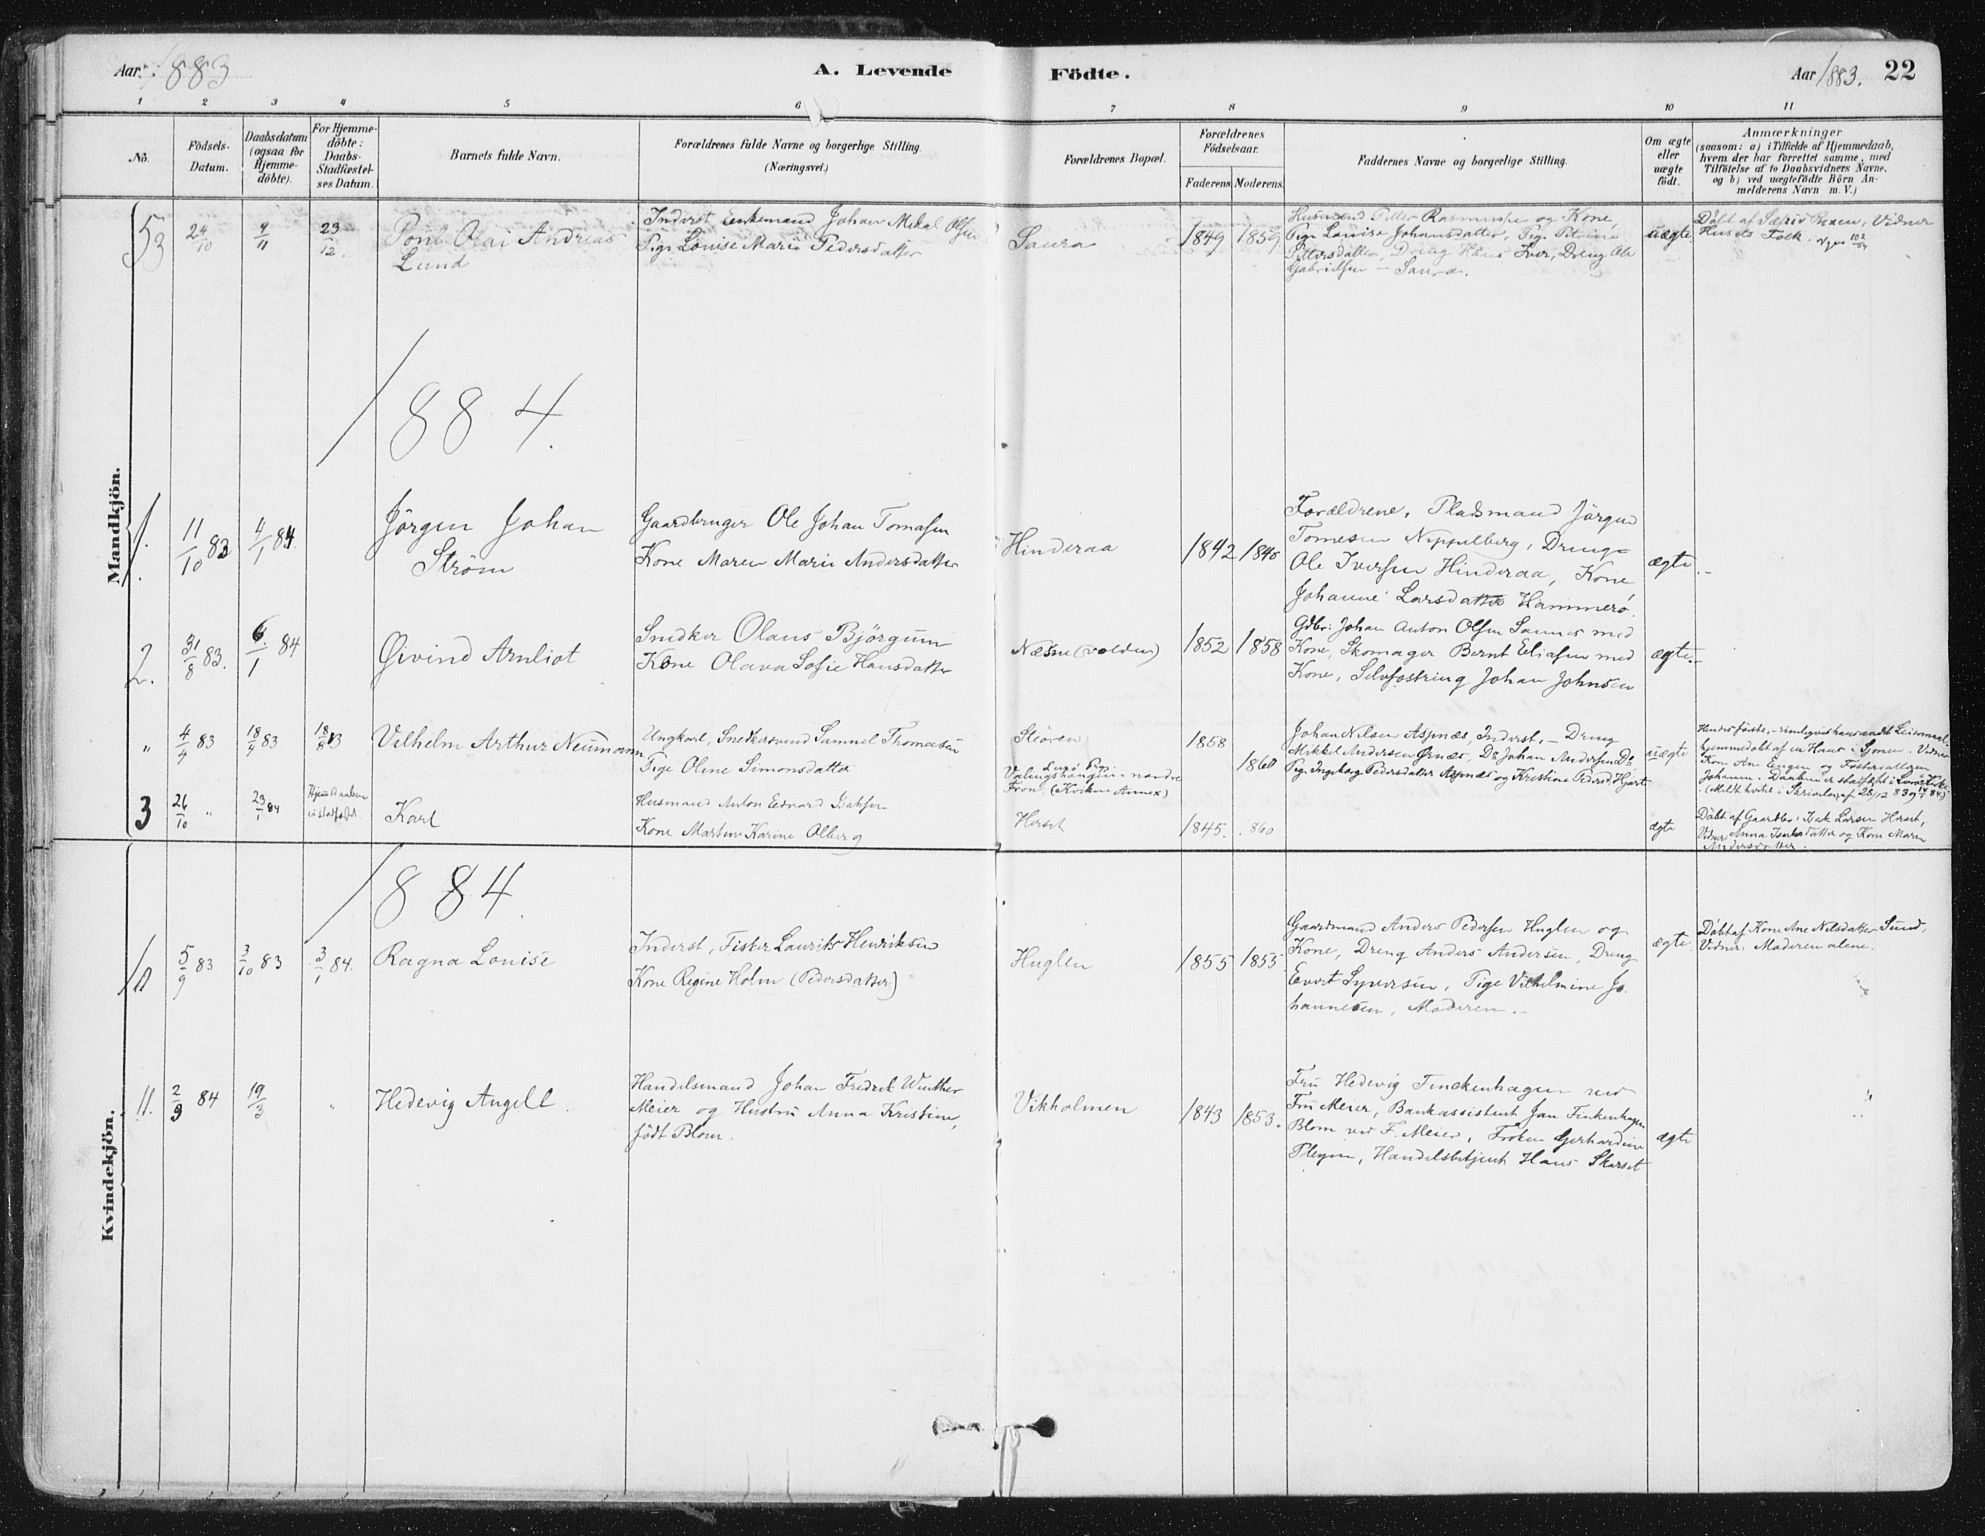 Aar 1883
A. Levende
Födte.
Aar 1883. 22
1 2 3 4 5 6 7 8 9 10 11
No.
Födsels-Datum.
Daabsdatum (ogsaa for Hjemme-döbte).
For Hjemme-döbte: Daabs-Stadfæstel-ses Datum.
Barnets fulde Navn.
Forældrenes fulde Navne og borgerlige Stilling.
(Næringsvei.)
Forældrenes Bopæl.
Forældrenes Födselsaar.
Faderens. Moderens.
Faddernes Navne og borgerlige Stilling.
Om ægte eller uægte födt.
Anmærkninger
(saasom: a) i Tilfælde af Hjemmedaab,
hvem der har forrettet samme, med
Tilföielse af to Daabsvidners Navne,
og b) ved uægtefödte Börn An-
melderens Navn m. V.)
Mandkjön.
53 24/10 9/11 23/12. Olai Andreas
Lund
Inderst Enkemand Johan Mikal Olsen
Pige Louise Marie Pedersdatter
Saura
1849 1859
Husmand Petter Rasmussen og Kone,
Pige Louise Johansdatter, Pige Petrine
Pettersdatter, Dreng Hans Iver, Dreng Ole
Gabrielsen - Saura.
uægte
Döbt af Vidner
Husets Folk.
1884.
1. 11/10 83 4/1 84
Jörgen Johan
Ström
Gaardbruger Ole Johan Tomasen
Kone Maren Marie Andersdatter
Hinderaa
1842 1848
Forældrene, Pladsmand Jörgen
Tomesen Nippelberg, Dreng
Ole Iversen Hinderaa, Kone
Johanne Larsdatter Hammerö.
ægte.
2. 31/8 83. 6/1 84
Øivind Arnliot
Snedker Olaus Björgum
Kone Olava Sofie Hansdatter
Næsne (volden)
1852 1858
Gdbr: Johan Anton Olsen Saunes med
Kone, Skomager Bernt Eliasen med
Kone, Selvfostring Johan Johnsen
ægte.
" 4/4 83 18/4 83 18/8 83
Vilhelm Arthur Neumann
Ungkarl, Snedkersvend Samuel Thomasen
Pige Oline Simonsdatter
Stören
Fron. (Kvikne Annex)
1858
1860
Johan Nilsen Aspnæs, Inderst, - Dreng
Mikkel Andersen Ørnæs, Do Johan Andersen Do
Pige Ingeborg Pedersdatter Aspnæs og Kristine Pedersd Hjart
uægte
hjemmedöbt af en Haar i Sjonen. Vidner
Kone Ane Engen og Fostersatteren
Johanna.
3 26/10 " 23/1 84
Karl
Husmand Anton Edvard Isaksen
Kone Martine Karine Olberg
Herset
1845. 1860
ægte
Döbt af Gaardbr: Isak Larsen Herset,
Vidner Anna Isaksdatter og Kone Maren
Andersdatter.
Kvindekjön.
1884.
5/9 83 3/10 83 3/1 84.
Ragna Louise
Inderst, Fisker Laurits Henriksen
Kone Regine Holm (Pedersdatter)
Huglen
1855 1855
Gaardmand Anders Pedersen Huglen og
Kone, Dreng Anders Andersen, Dreng
Evert Syversen, Pige Vilhelmine Jo-
hannesen, Moderen.
ægte
Döbt af Kone Ane Nilsdatter Sund,
Vidner: Moderen alene.
11. 2/3 84 19/3 "
Hedevig Angell.
Handelsmand Johan Fredrik Winther
Meier og Hustru Anna Kristine,
födt Blom.
Vikholmen
1843 1853.
Fru Hedevig Finckenhagen ved
Fru Meier, Bankassistent Jan Finkenhagen
Blom ved F. Meier, Fröken Gerhardine
Pleym, Handelsbetjent Hans Skarset
ægte